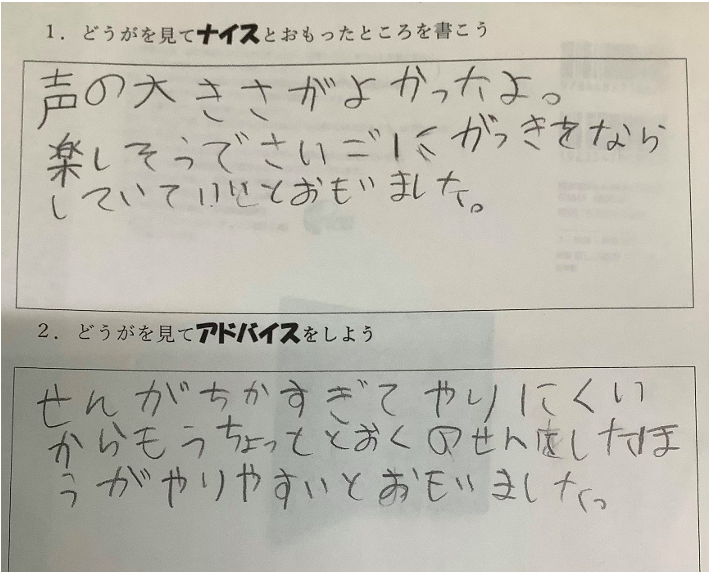 1．どうがを見てナイスとおもったところを書こう
声の大きさがよかったよ。
楽しそうでさいごにがっきをなら
していていいとおもいました。
2．どうがを見てアドバイスをしよう
せんがちかすぎてやりにくい
からもうちょっととおくのせんをしたほ
うがやりやすいとおもいました。